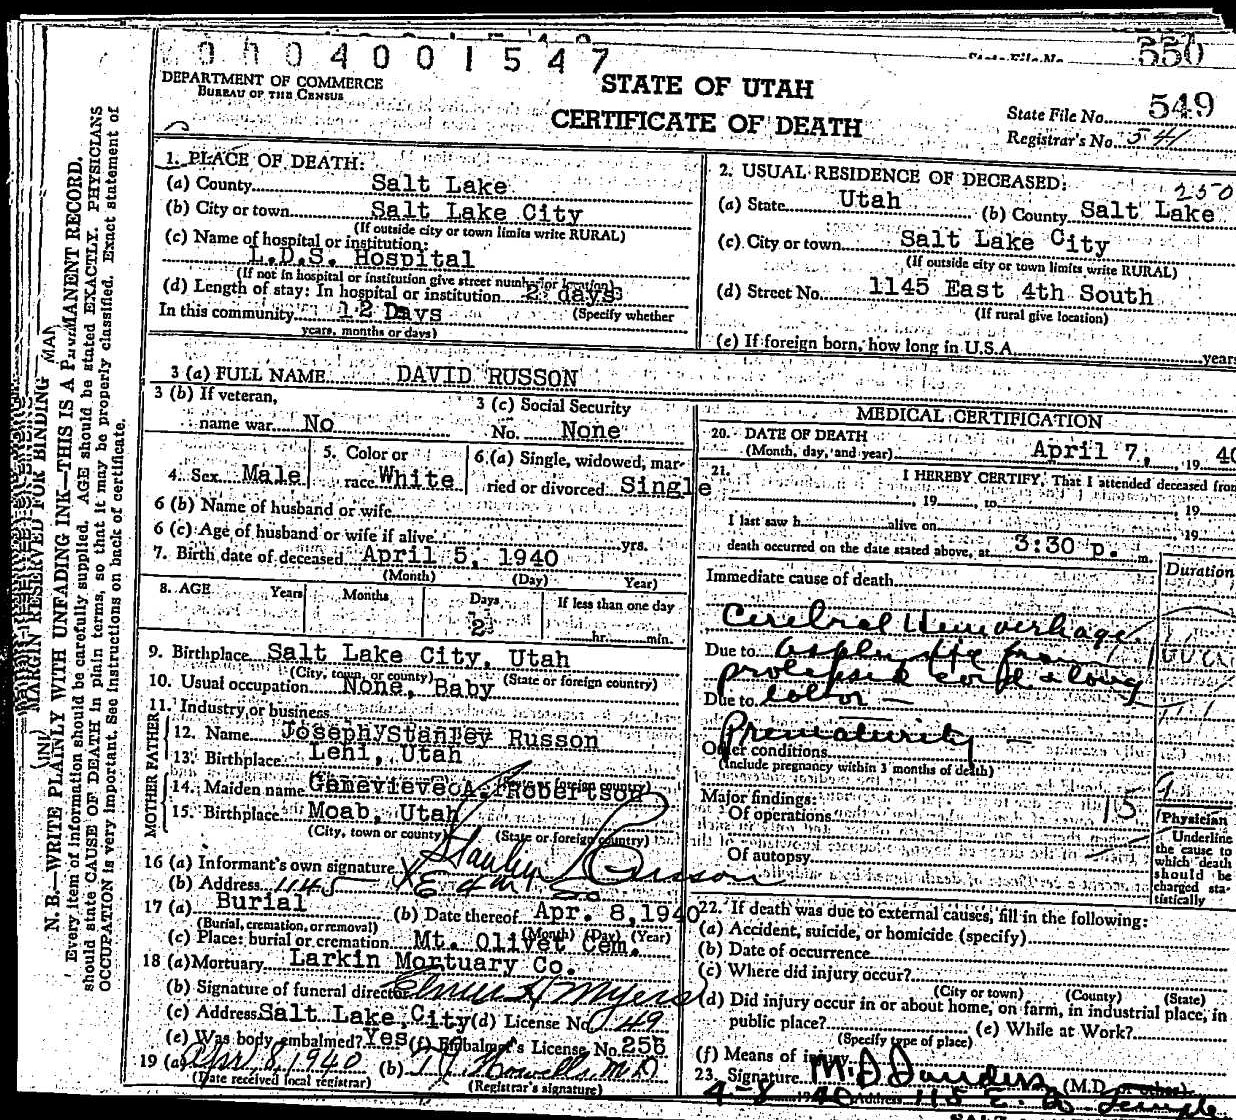 0004001547
550
DEPARTMENT OF COMMERCE
BUREAU OF THE CENSUS
STATE OF UTAH
CERTIFICATE OF DEATH
State File No. 549
Registrar's No. 541
1. PLACE OF DEATH:
(a) County Salt Lake
(b) City or town Salt Lake City
(If outside city or town limits write RURAL)
(c) Name of hospital or institution:
L.D.S. Hospital
(If not in hospital or institution give street number or location)
(d) Length of stay: In hospital or institution 2 days
(Specify whether
In this community 2 Days
years, months or days)
2. USUAL RESIDENCE OF DECEASED:
250
(a) State Utah (b) County Salt Lake
(c) City or town Salt Lake City
(If outside city or town limits write RURAL)
(d) Street No. 1145 East 4th South
(If rural give location)
(e) If foreign born, how long in U.S.A. years
3 (a) FULL NAME DAVID RUSSON
3 (b) If veteran,
name war No
3 (c) Social Security
No. None
4. Sex Male
5. Color or
race White
6.(a) Single, widowed, mar-
ried or divorced Single
6 (b) Name of husband or wife
6 (c) Age of husband or wife if alive yrs.
7. Birth date of deceased April 5, 1940
(Month) (Day) Year)
8. AGE Years Months Days If less than one day
2 hr. min.
9. Birthplace Salt Lake City, Utah
(City, town, or county) (State or foreign country)
10. Usual occupation None, Baby
11. Industry or business
FATHER
12. Name Joseph Stanley Russon
13. Birthplace Lehi, Utah
MOTHER
14. Maiden name Genevieve A. Robertson
15. Birthplace Moab, Utah
(City, town or county) (State or foreign country)
16 (a) Informant's own signature X Stanley Russon
(b) Address 1145 E 4th So
17 (a) Burial (b) Date thereof Apr. 8, 1940
(Burial, cremation, or removal) (Month) (Day) (Year)
(c) Place: burial or cremation Mt. Olivet Cem.
18 (a) Mortuary Larkin Mortuary Co.
(b) Signature of funeral director Elmer Myers
(c) Address Salt Lake City (d) License No. 49
(e) Was body embalmed? Yes (f) Embalmer's License No. 256
19 (a) Apr 8, 1940 (b) T. J. Howells, M.D.
(Date received local registrar) (Registrar's signature)
MEDICAL CERTIFICATION
20. DATE OF DEATH
(Month, day, and year) April 7, 19 40
21. I HEREBY CERTIFY, That I attended deceased from
19 , to , 19
I last saw h alive on , 19
death occurred on the date stated above, at 3:30 p. m.
Duration
Immediate cause of death
Cerebral Hemorrhage
Due to asphyxia from
prolapsed cord along
Due to labor
Prematurity
Other conditions
(Include pregnancy within 3 months of death)
Major findings:
Of operations
15
Of autopsy
Physician
Underline
the cause to
which death
should be
charged sta-
tistically
22. If death was due to external causes, fill in the following:
(a) Accident, suicide, or homicide (specify)
(b) Date of occurrence
(c) Where did injury occur?
(City or town) (County) (State)
(d) Did injury occur in or about home, on farm, in industrial place, in
public place? (e) While at Work?
(Specify type of place)
(f) Means of injury
23. Signature M. D. Sanders (M.D. or other)
4-8 1940 Address 115 E. So Temple
N. B.—WRITE PLAINLY WITH UNFADING INK—THIS IS A PERMANENT RECORD.
MARGIN RESERVED FOR BINDING
Every item of information should be carefully supplied. AGE should be stated EXACTLY. PHYSICIANS
should state CAUSE OF DEATH in plain terms, so that it may be properly classified. Exact statement of
OCCUPATION is very important. See instructions on back of certificate.